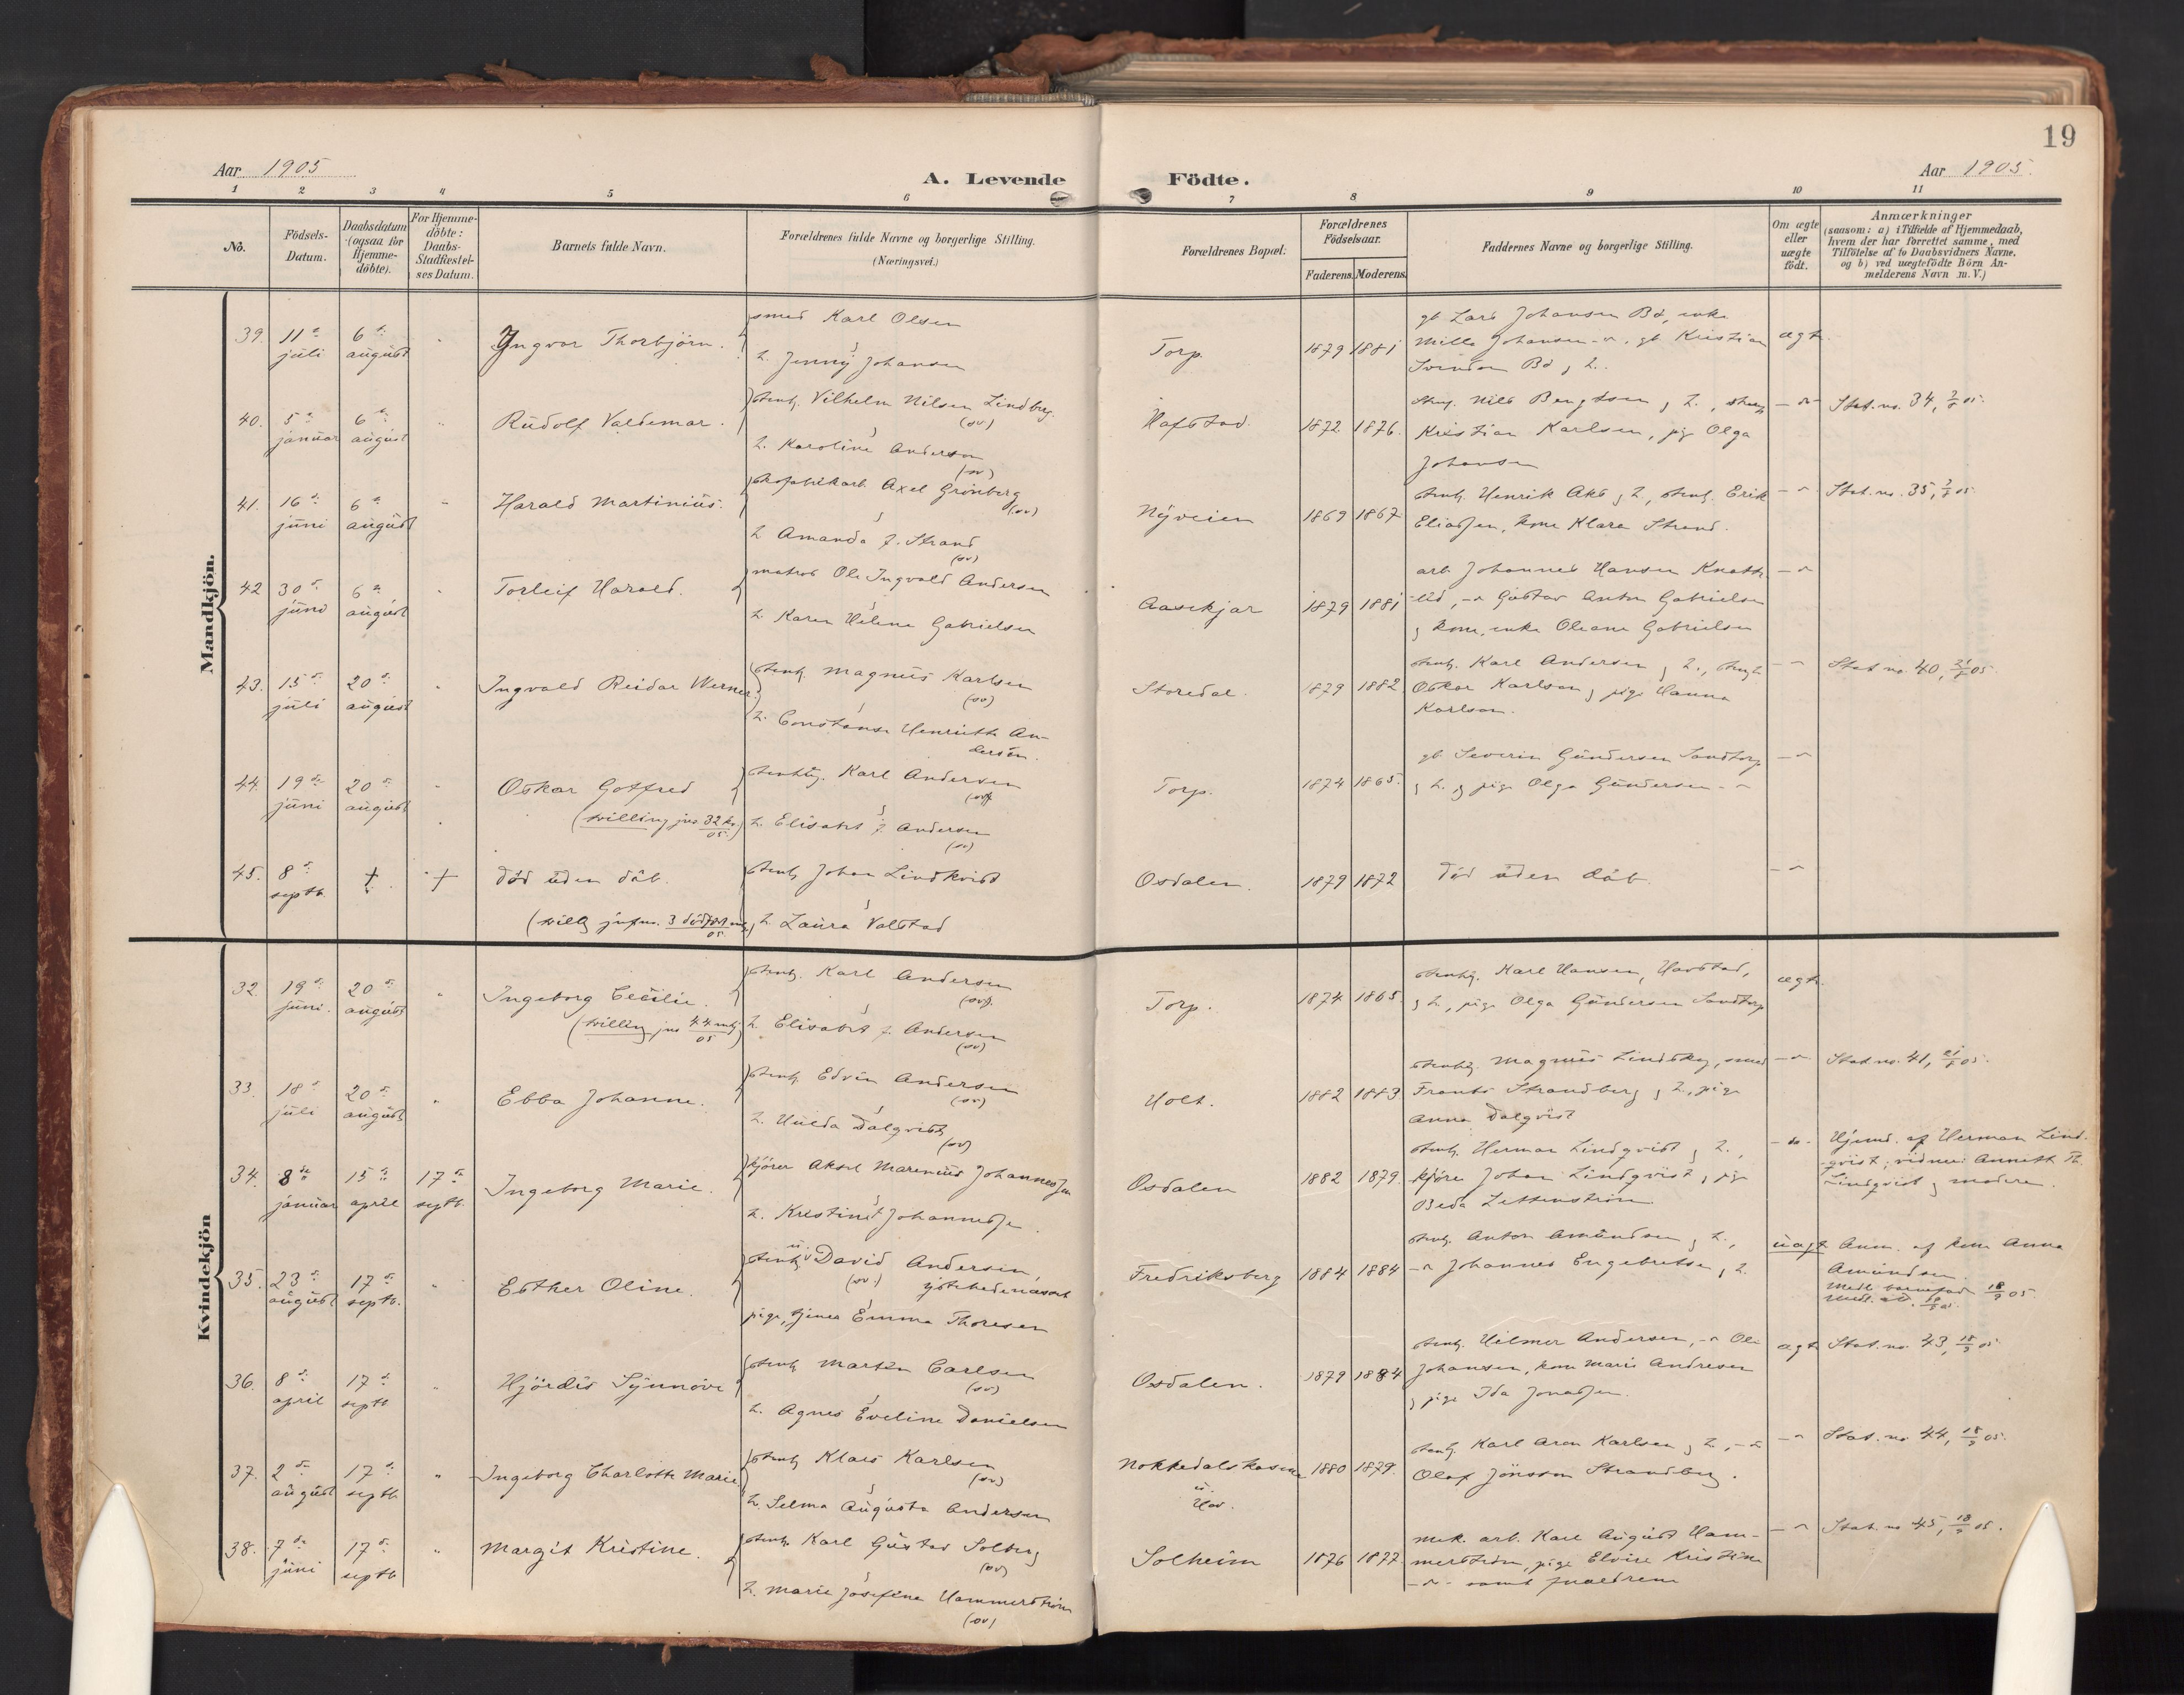 19
Aar 1905
A. Levende Födte.
Aar 1905.
1 2 3 4 5 6 7 8 9 10 11
No.
Födsels-Datum.
Daabsdatum (ogsaa for Hjemme-döbte).
For Hjemme-döbte: Daabs-Stadfestel-ses Datum.
Barnets fulde Navn.
Forældrenes fulde Navne og borgerlige Stilling. (Næringsvei.)
Forældrenes Bopæl.
Forældrenes Födselsaar.
Faderens. Moderens.
Faddernes Navne og borgerlige Stilling.
Om ægte eller uægte födt.
Anmærkninger
(saasom: a) i Tilfælde af Hjemmedaab,
hvem der har forrettet samme, med
Tilföielse af to Daabsvidners Navne,
og b) ved uægtefödte Börn An-
melderens Navn m.V.)
Mandkjön.
39. 11te juli 6te august " Yngvar Thorbjörn.
smed Karl Olsen
h. Jenny Johansen
Torp. 1879 1881
gb Lars Johansen Bö, enke
Mille Johansen -"-, gb Kristian
Svendsen Bö, h.
ægte
40. 5te januar 6te august " Rudolf Valdemar.
stenh. Vilhelm Nilsen Lindberg (sv)
h. Karoline Anderson (sv)
Hafstad. 1872 1876.
sthug. Nils Bengtsen & h., sthug
Kristian Karlsen, pig Olga
Johansen
-"- Stat. no. 34, 7/8 05.
41. 16de juni 6te august " Harald Martinius.
skofabrikarb. Axel Grönberg (sv)
h Amanda f. Strand (sv)
Nyveien 1869 1867
stenh. Henrik Aks & h., stenh. Erik
Eliassen, kone Klara Strand.
-"- Stat. no. 35, 7/8 05.
42 30te juni 6te august " Torleif Harald.
matros Ole Ingvald Andersen
h. Karen Helene Gabrielsen
Aasekjær 1879 1881
arb. Johannes Hansen Knatte-
rød, -"- Gustav Anton Gabrielsen
& kone, enke Oleane Gabrielsen
-"-
43. 15de juli 20de august " Ingvald Reidar Werner
stenh. Magnus Karlsen (sv)
h. Constanse Henriette An-
dersen.
Storedal. 1879 1882
stenh. Karl Andersen & h., stenh
Oskar Karlson & pige Hanna
Karlson.
-"- Stat no. 40, 21/8 05.
44. 19de juni 20de august " Oskar Gotfred
(tvilling jvs 32 kv. 05)
stenhug. Karl Andersen (sv)
h. Elisabet f. Andersen (sv)
Torp. 1874 1865.
gb Severin Gundersen Sandtorp
& h. & pige Olga Gundersen -"-
-"-
45. 8de septb. † † död uden daab.
(tvill. jvfm. 3 dödfødt 05)
stenh Johan Lindkvist
h. Laura Valstad
Osdalen. 1879 1872
död uden daab.
-"-
Kvindekjön
32. 19de juni. 20de august " Ingeborg Cecilie.
(tvilling jvs 44 mk 05)
stenh. Karl Andersen (sv).
h Elisabet f. Andersen (sv)
Torp. 1874 1865.
stenhg. Karl Hansen, Havstad,
& h., pige Olga Gundersen Sandtorp
ægte.
33. 18de juli 20de august " Ebba Johanne.
stenh. Edvin Andersen (sv)
h. Hulda Dalqvist (sv)
Holt. 1882 1883
stenhg. Magnus Lindskog, smed
Frants Strandberg & h., pige
Anna Dalqvist
-"- Stat no. 41, 21/8 05.
34. 8de januar 15de april 17de septb. Ingeborg Marie.
kjörer Aksel Marenius Johannessen
h. Kristine Johannessen.
Osdalen 1882 1879.
stenh. Herman Lindqvist & h.,
kjörer Johan Lindqvist, pig
Beda Zetterström
-do- Hjemd. af Herman Lind-
qvist; vidner: Annette Th.
Lindqvist & moderen.
35. 23de august 17de septb. " Esther Oline.
stenh. David Andersen, (sv:) götehedenasat
pige, tjener Emma Thoresen
Fredriksberg 1884 1884
stenh. Anton Amundsen & h.,
-"- Johannes Engebretsen & h.
uægt. Anm. af kone Anna
Amundsen.
Medt. barnefad 18/9 05.
36. 8de april 17de septb " Hjördis Synnöve
stenh Martin Carlsen (sv)
h. Agnes Eveline Danielsen
Osdalen. 1879 1884
stenh. Hilmer Andersen, -"- Ole
Johansen, kone Maris Andresen
& pige Ida Jonassen.
ægte Stat. no 43, 18/9 05
37. 2de august 17de septb " Ingeborg Charlotte Marie
stenh Klaes Karlsen (sv)
h. Selma Augusta Andersen
Nokkedalskasene
u.
Hov. 1880 1879.
stenh. Karl Aron Karlsen & h., -"-
Olaf Jönsson Strandberg.
-"- Stat. no 44, 18/9 05.
38. 7de juni 17de septb " Margit Kristine.
stenh. Karl Gustav Solberg (sv)
h. Marie Josefine Hammerström (sv)
Solheim 1876 1877.
mek. arb. Karl August Ham-
merström, pige Elvire Kristine
-"- samt forældrene
-"- Stat. no 45, 18/9 05.